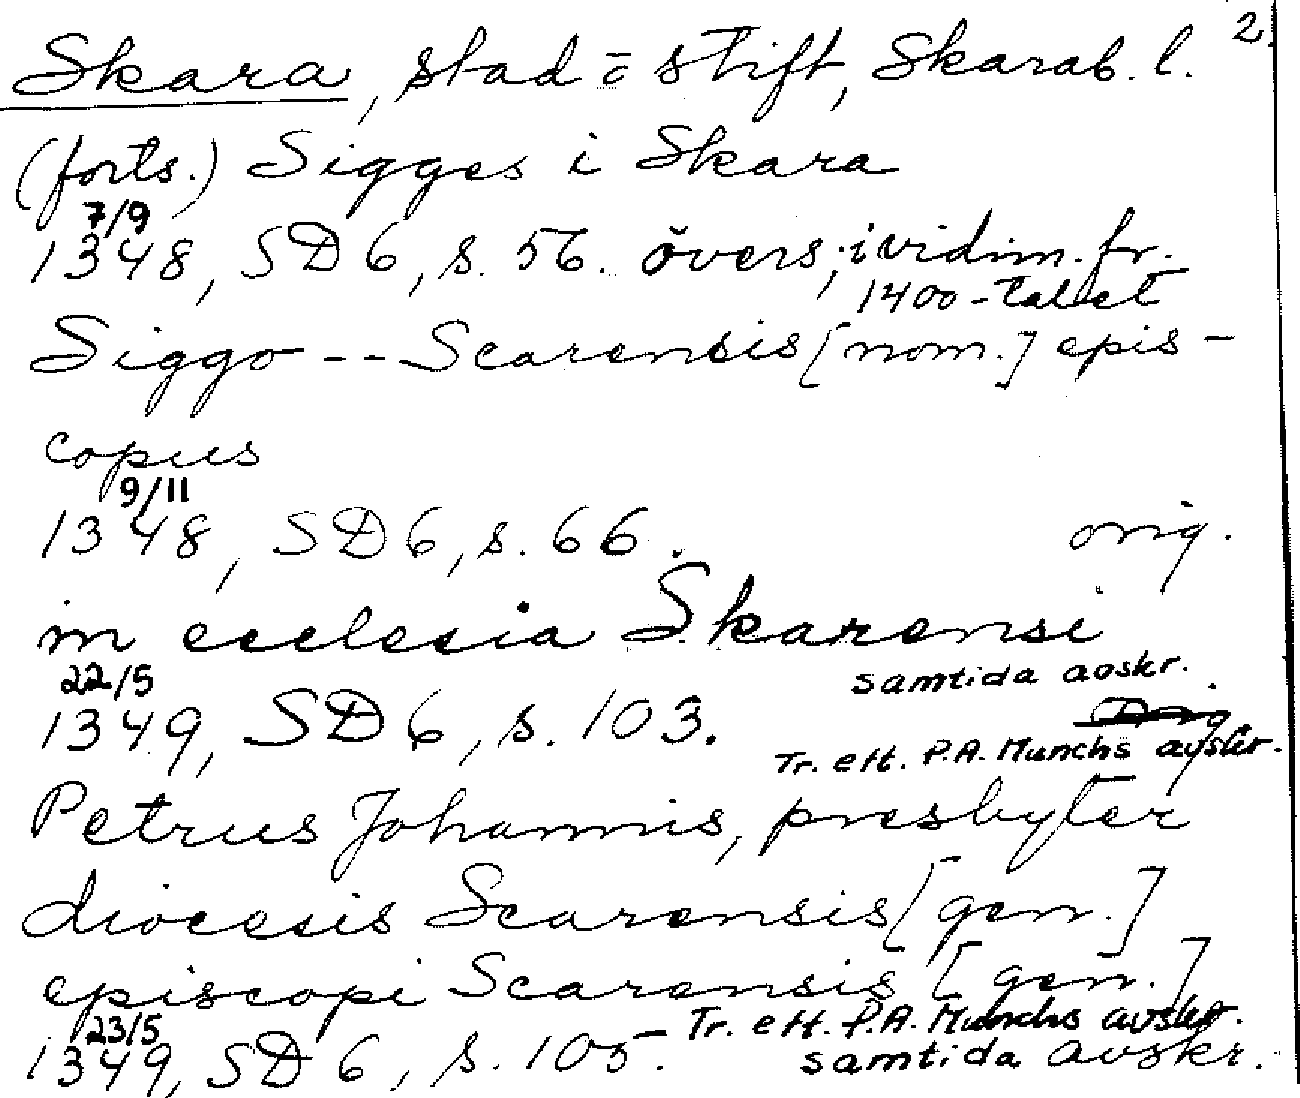 2.
Skara, stad o stift, Skarab. l.
(forts.) Sigges i Skara
7/9
1348, SD 6, s. 56. övers; i vidim. fr.
1400-talet
Siggo -- Scarensis [nom.] epis-
copus
9/11
1348, SD 6, s. 66. orig.
in ecclesia Skarensi
22/5
samtida avskr.
1349, SD 6, s. 103.
Tr. eft. P.A. Munchs avskr.
Petrus Johannis, presbyter
diocesis Scarensis [gen.]
episcopi Scarensis [gen.]
23/5
Tr. eft. P.A. Munchs avskr.
1349, SD 6, s. 105. samtida avskr.